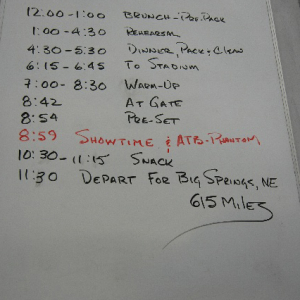 12:00 - 1:00 BRUNCH - POP. PACK
1:00 - 4:30 REHEARSAL
4:30 - 5:30 DINNER, PACK & CLEAN
6:15 - 6:45 TO STADIUM
7:00 - 8:30 WARM-UP
8:42 AT GATE
8:54 PRE-SET
8:59 SHOWTIME & ATB-PHANTOM
10:30 - 11:15 SNACK
11:30 DEPART FOR BIG SPRINGS, NE
615 MILES